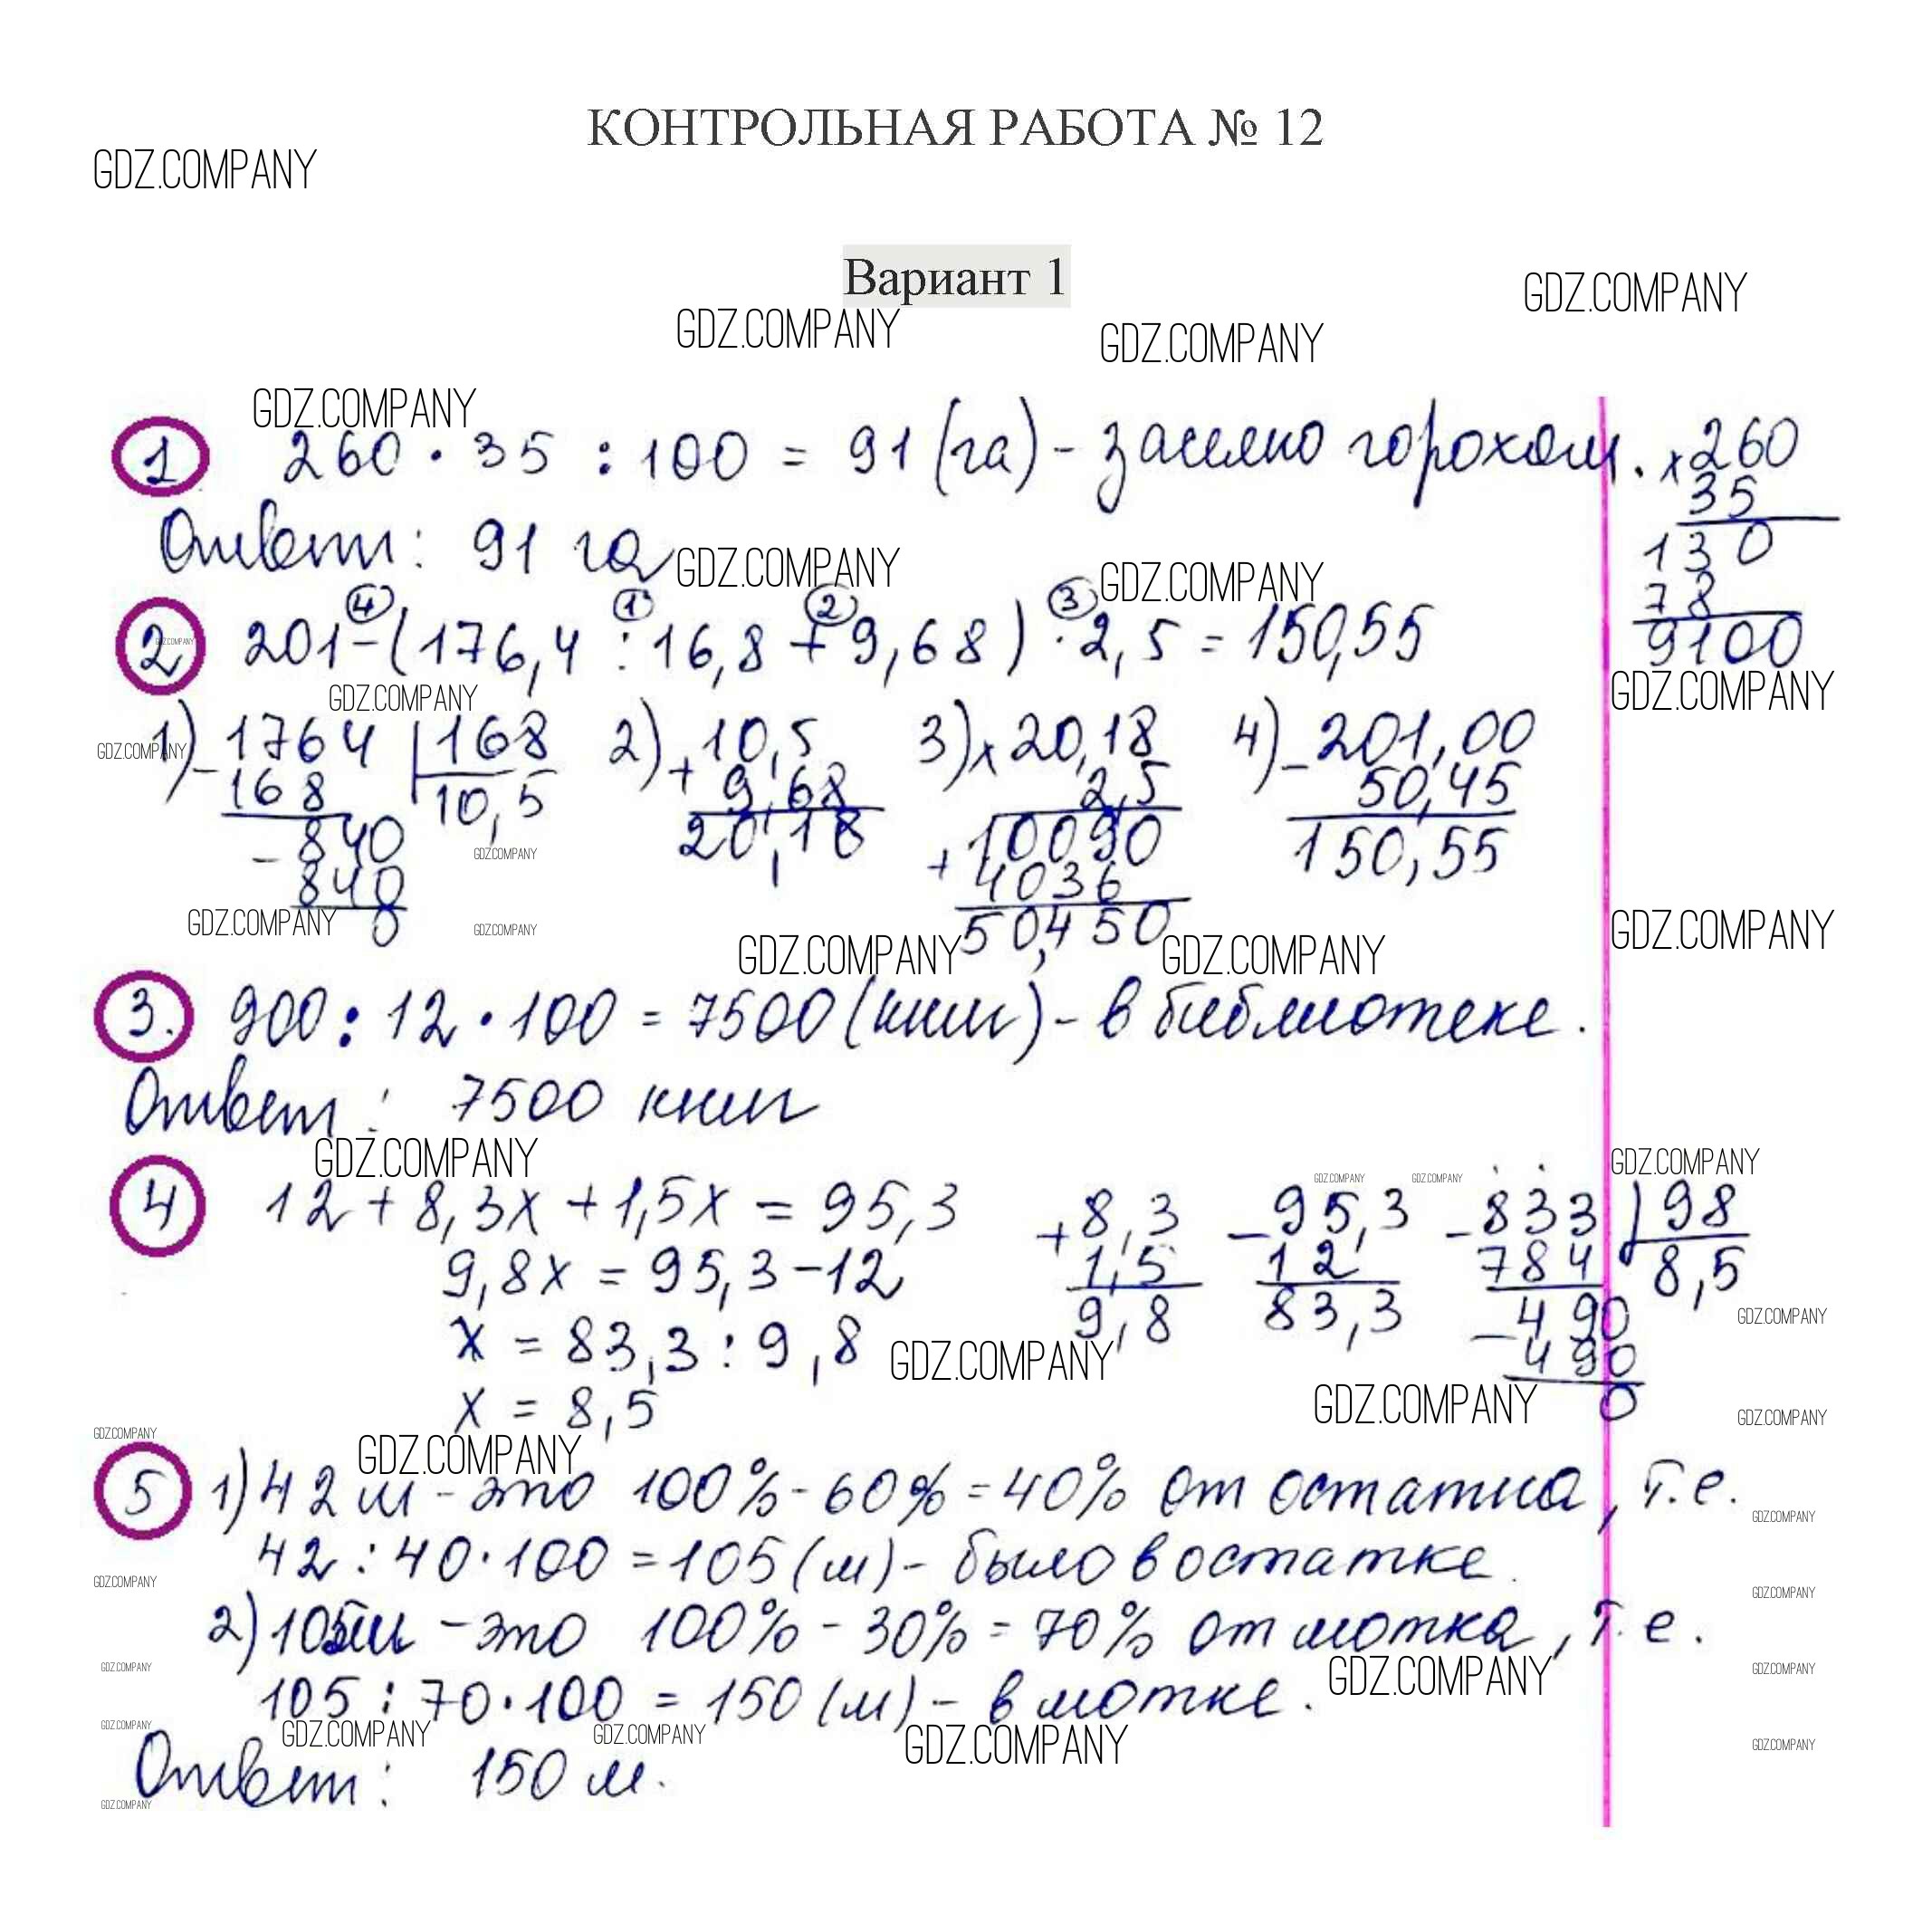 КОНТРОЛЬНАЯ РАБОТА № 12
GDZ.COMPANY
Вариант 1
GDZ.COMPANY
GDZ.COMPANY GDZ.COMPANY
GDZ.COMPANY
1 260 · 35 : 100 = 91 (га) - засеяно горохом. × 260
35
130
78
9100
Ответ: 91 га
GDZ.COMPANY GDZ.COMPANY
4 1 2 3
2 201 - (176,4 : 16,8 + 9,68) · 2,5 = 150,55
GDZ.COMPANY
GDZ.COMPANY GDZ.COMPANY
GDZ.COMPANY
1) - 1764 | 168
168 10,5
- 840
840
0
2) + 10,5
9,68
20,18
3) × 20,18
2,5
+ 10090
4036
50,450
4) - 201,00
50,45
150,55
GDZ.COMPANY
GDZ.COMPANY GDZ.COMPANY GDZ.COMPANY
GDZ.COMPANY GDZ.COMPANY
3. 900 : 12 · 100 = 7500 (книг) - в библиотеке.
Ответ: 7500 книг
GDZ.COMPANY GDZ.COMPANY
GDZ.COMPANY GDZ.COMPANY
4 12 + 8,3x + 1,5x = 95,3
9,8x = 95,3 - 12
x = 83,3 : 9,8
x = 8,5
+ 8,3
1,5
9,8
- 95,3
12
83,3
- 833 | 98
784 8,5
- 490
490
0
GDZ.COMPANY
GDZ.COMPANY
GDZ.COMPANY GDZ.COMPANY
GDZ.COMPANY GDZ.COMPANY
5 1) 42 м - это 100% - 60% = 40% от остатка, т.е.
GDZ.COMPANY
42 : 40 · 100 = 105 (м) - было в остатке.
GDZ.COMPANY GDZ.COMPANY
2) 105 м - это 100% - 30% = 70% от мотка, т.е.
GDZ.COMPANY GDZ.COMPANY GDZ.COMPANY
105 : 70 · 100 = 150 (м) - в мотке.
GDZ.COMPANY GDZ.COMPANY GDZ.COMPANY GDZ.COMPANY GDZ.COMPANY
Ответ: 150 м.
GDZ.COMPANY